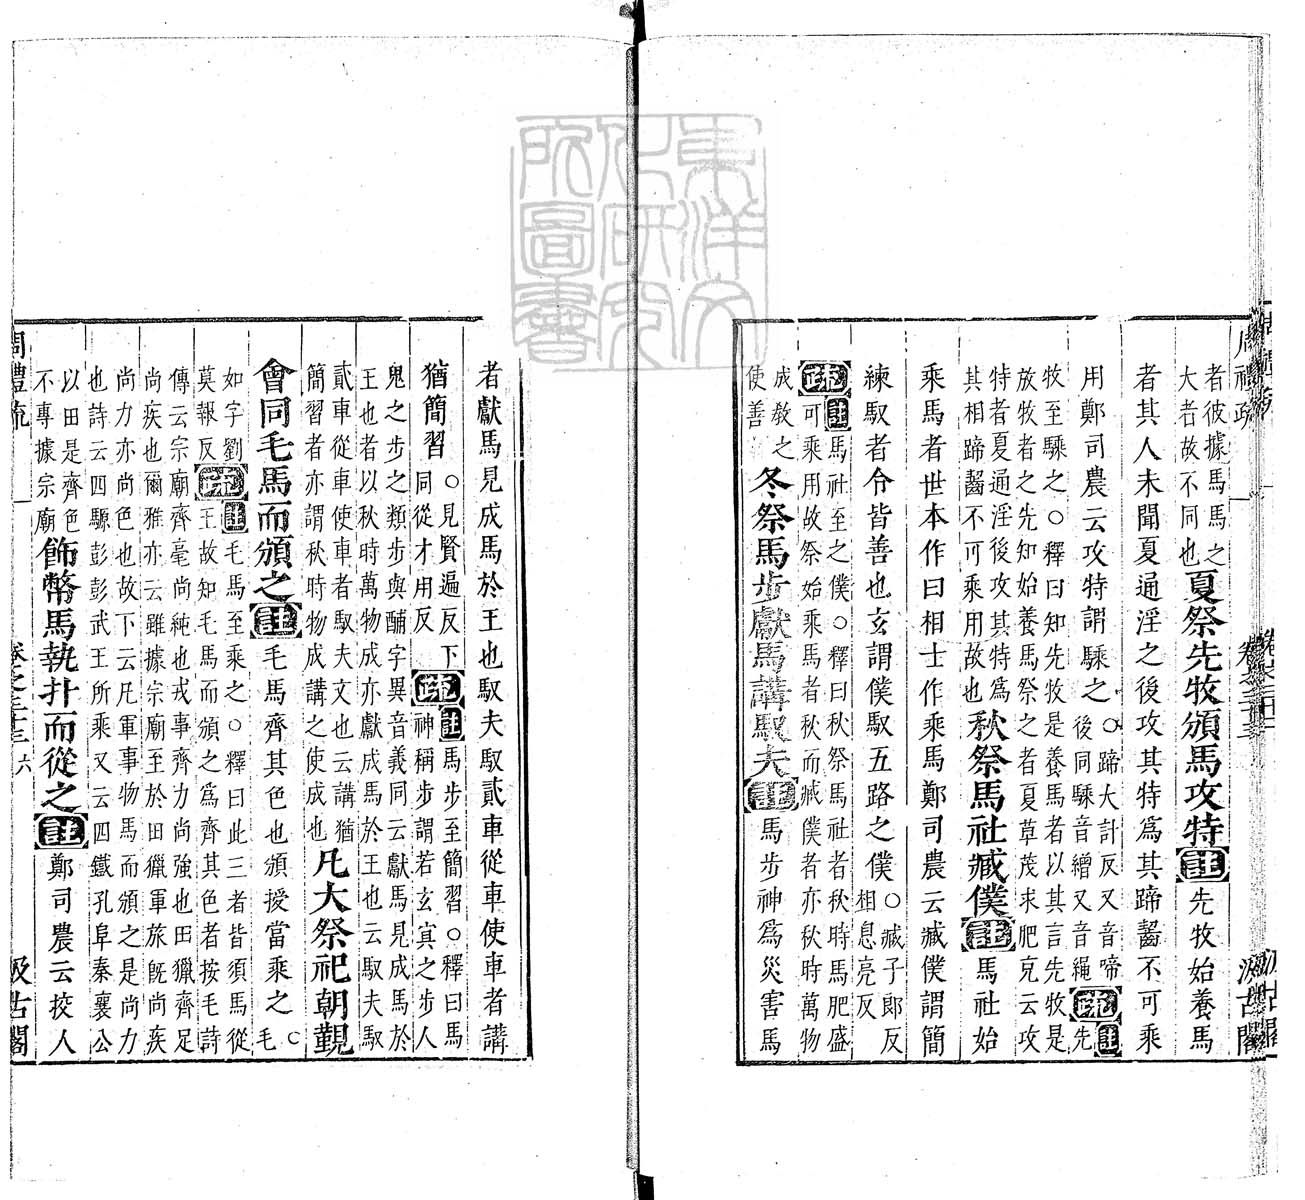 者彼據馬馬之
大者故不同也夏祭先牧頒馬攻特註先牧始養馬
者其人未聞夏通淫之後攻其特為其蹄齧不可乘
用鄭司農云攻特謂騬之○蹄大計反又音啼疏註先
後同騬音繒又音繩
牧至騬之○釋曰知先牧是養馬者以其言先牧是
放牧者之先知始養馬祭之者夏草茂求肥充云攻
特者夏通淫後攻其特為
其相蹄齧不可乘用故也秋祭馬社臧僕註馬社始
乘馬者世本作曰相士作乘馬鄭司農云臧僕謂簡
練馭者令皆善也玄謂僕馭五路之僕○臧子郎反
相息亮反
疏註馬社至之僕○釋曰秋祭馬社者秋時馬肥盛
可乘用故祭始乘馬者秋而臧僕者亦秋時萬物
成教之
使善冬祭馬步獻馬講馭夫註馬步神為災害馬
者獻馬見成馬於王也馭夫馭貳車從車使車者講
猶簡習○見賢遍反下
同從才用反疏註馬步至簡習○釋曰馬
神稱步謂若玄冥之步人
鬼之步之類步與酺字異音義同云獻馬見成馬於
王也者以秋時萬物成亦獻成馬於王也云馭夫馭
貳車從車使車者馭夫文也云講猶
簡習者亦謂秋時物成講之使成也凡大祭祀朝覲
會同毛馬而頒之註毛馬齊其色也頒授當乘之○毛
如字劉
莫報反疏註毛馬至乘之○釋曰此三者皆須馬從
王故知毛馬而頒之為齊其色者按毛詩
傳云宗廟齊毫尚純也戎事齊力尚強也田獵齊足
尚疾也爾雅亦云雖據宗廟至於田獵軍旅既尚疾
尚力亦尚色也故下云凡軍事物馬而頒之是尚力
也詩云四騵彭彭武王所乘又云四鐵孔阜秦襄公
以田是齊色
不專據宗廟飾幣馬執扑而從之註鄭司農云挍人
周禮疏
卷之三十三
六
汲古閣